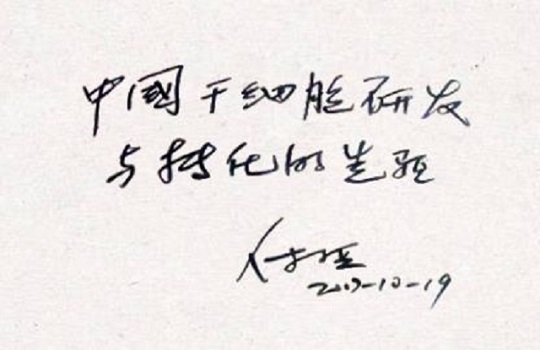 中國干细胞研发
与转化的先驱
10-19